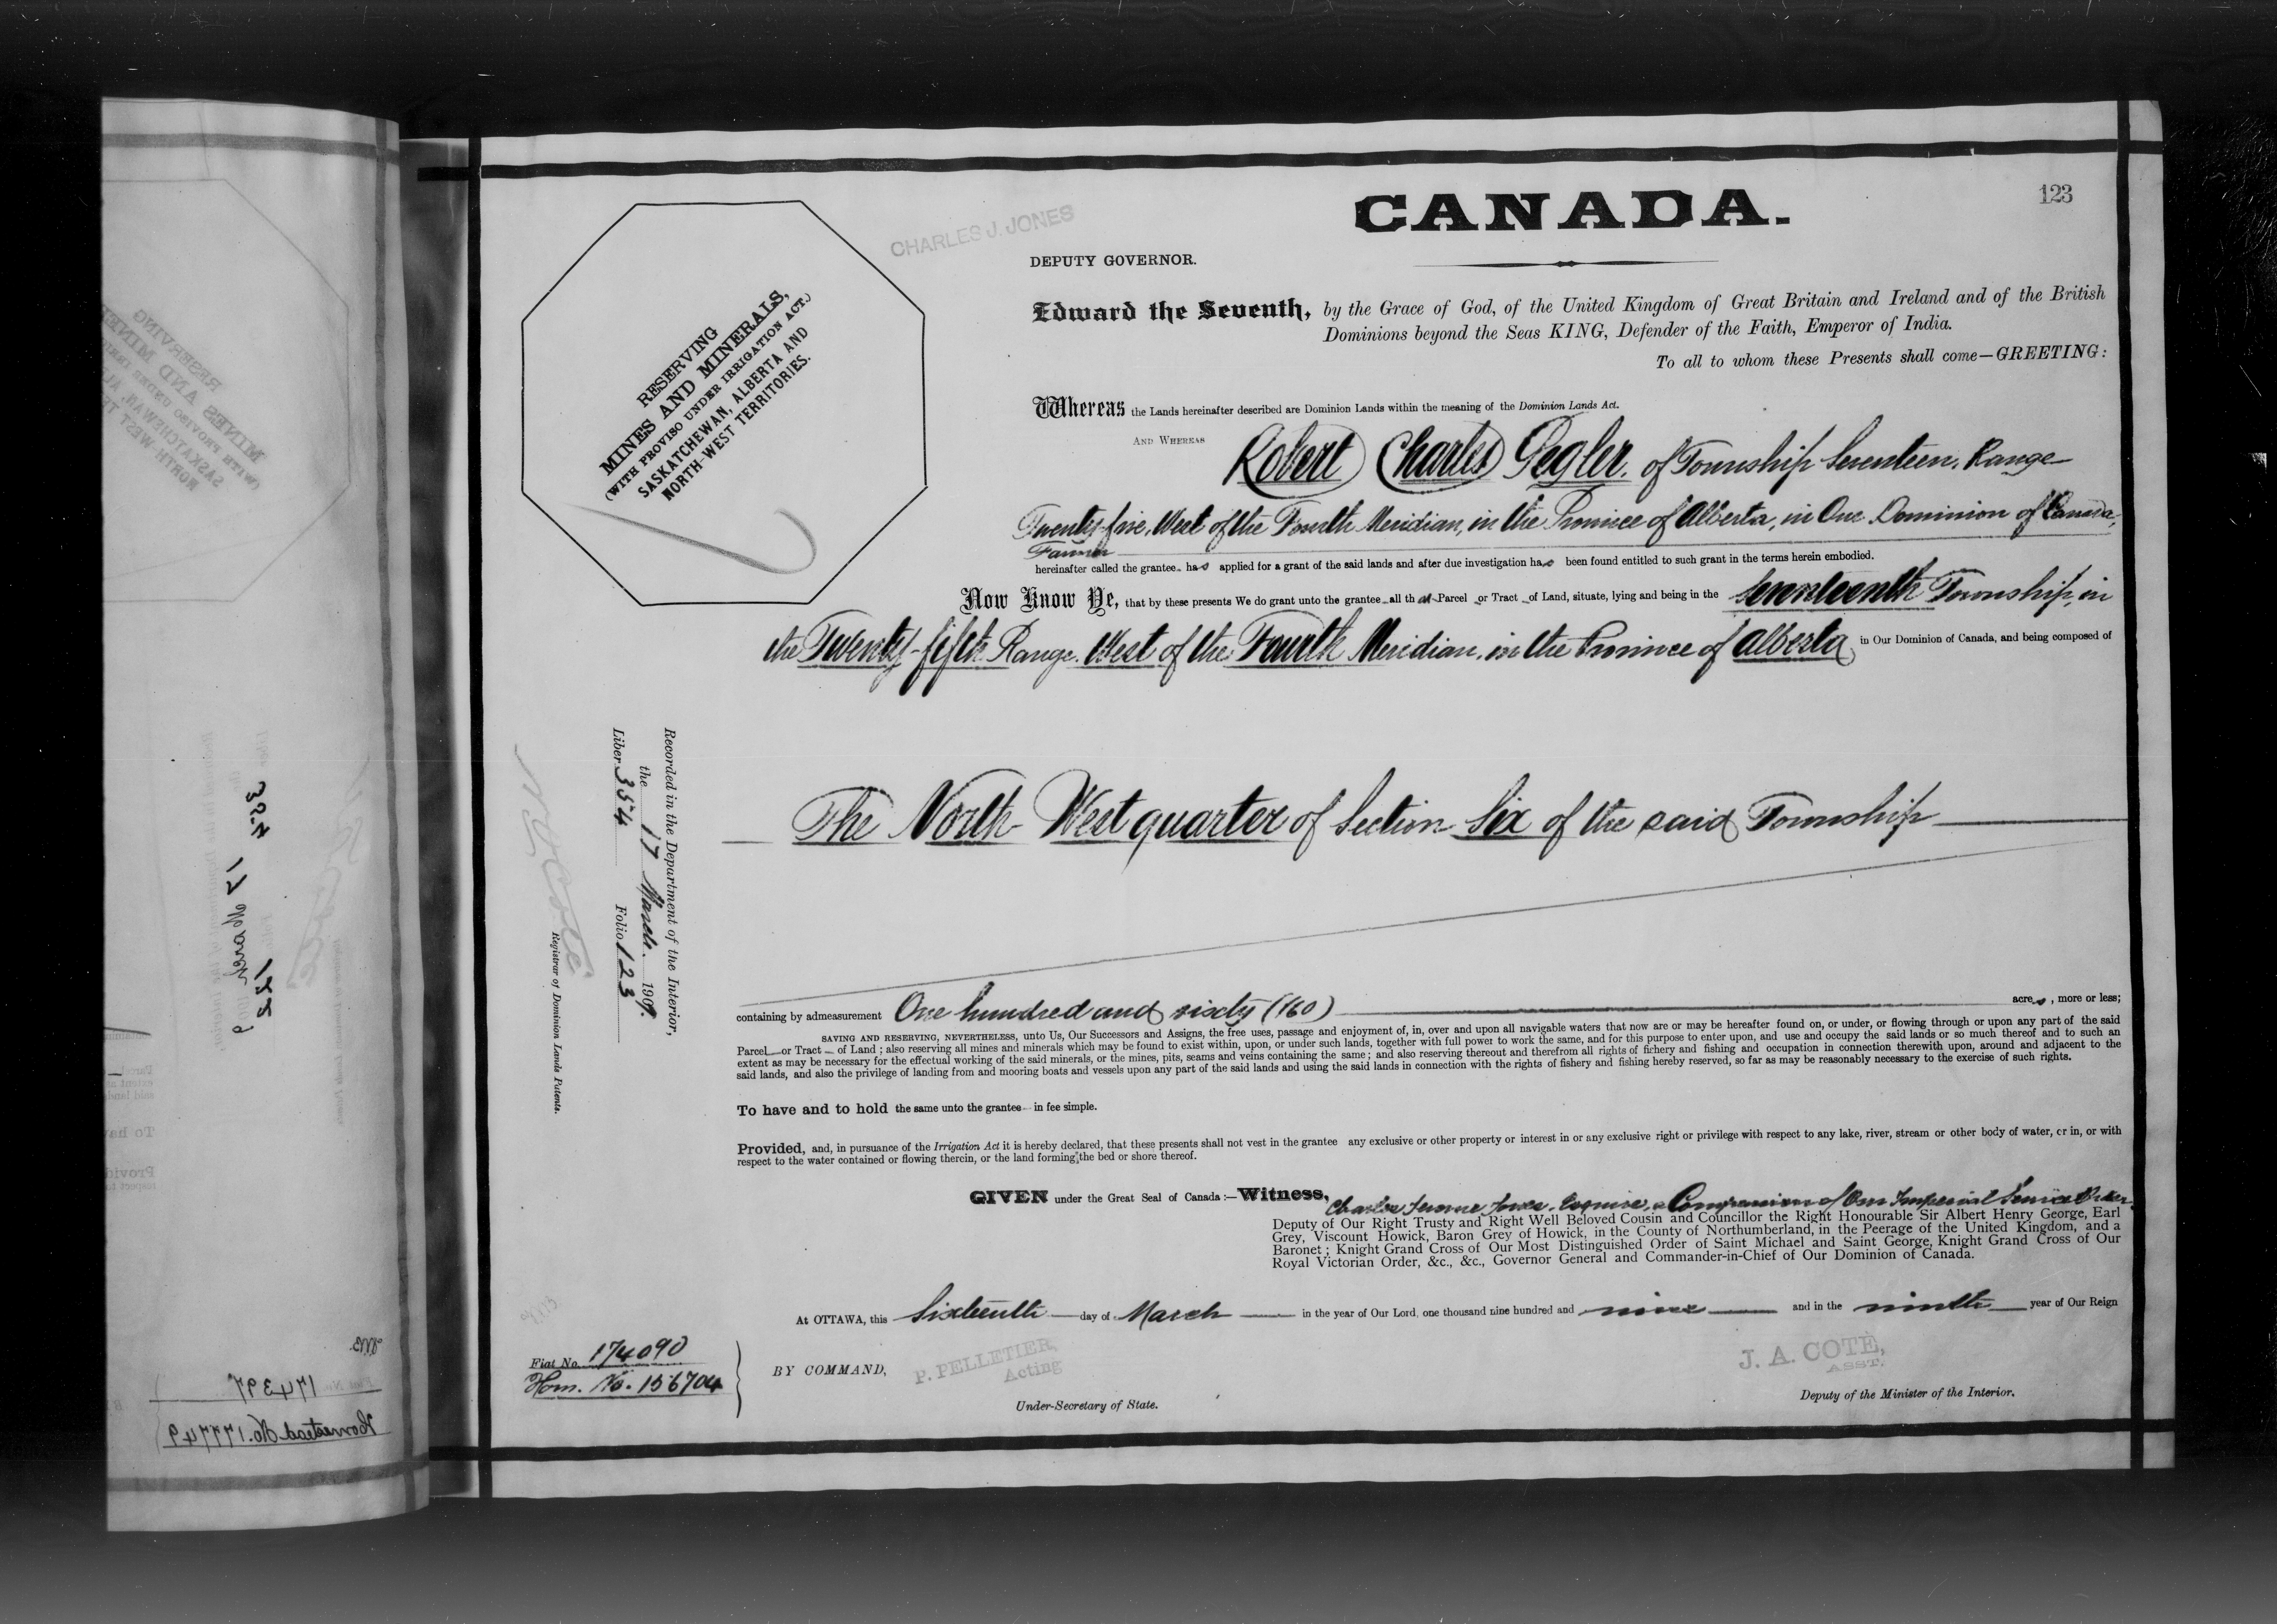 CANADA.
123
CHARLES J. JONES
DEPUTY GOVERNOR.
RESERVING
MINES AND MINERALS,
(WITH PROVISO UNDER IRRIGATION ACT.)
SASKATCHEWAN, ALBERTA AND
NORTH-WEST TERRITORIES.
Edward the Seventh, by the Grace of God, of the United Kingdom of Great Britain and Ireland and of the British
Dominions beyond the Seas KING, Defender of the Faith, Emperor of India.
To all to whom these Presents shall come—GREETING:
Whereas the Lands hereinafter described are Dominion Lands within the meaning of the Dominion Lands Act.
AND WHEREAS Robert Charles Pegler, of Township Seventeen, Range
Twenty-five, West of the Fourth Meridian, in the Province of Alberta, in Our Dominion of Canada,
Farmer
hereinafter called the grantee has applied for a grant of the said lands and after due investigation has been found entitled to such grant in the terms herein embodied.
Now Know Ye, that by these presents We do grant unto the grantee all that Parcel or Tract of Land, situate, lying and being in the Seventeenth Township, in
the Twenty-fifth Range, West of the Fourth Meridian, in the Province of Alberta, in Our Dominion of Canada, and being composed of
The North West quarter of Section Six of the said Township
containing by admeasurement One hundred and sixty (160) acres, more or less;
SAVING AND RESERVING, NEVERTHELESS, unto Us, Our Successors and Assigns, the free uses, passage and enjoyment of, in, over and upon all navigable waters that now are or may be hereafter found on, or under, or flowing through or upon any part of the said
Parcel or Tract of Land; also reserving all mines and minerals which may be found to exist within, upon, or under such lands, together with full power to work the same, and for this purpose to enter upon, and use and occupy the said lands or so much thereof and to such an
extent as may be necessary for the effectual working of the said minerals, or the mines, pits, seams and veins containing the same; and also reserving thereout and therefrom all rights of fishery and fishing and occupation in connection therewith upon, around and adjacent to the
said lands, and also the privilege of landing from and mooring boats and vessels upon any part of the said lands and using the said lands in connection with the rights of fishery and fishing hereby reserved, so far as may be reasonably necessary to the exercise of such rights.
To have and to hold the same unto the grantee in fee simple.
Provided, and, in pursuance of the Irrigation Act it is hereby declared, that these presents shall not vest in the grantee any exclusive or other property or interest in or any exclusive right or privilege with respect to any lake, river, stream or other body of water, or in, or with
respect to the water contained or flowing therein, or the land forming the bed or shore thereof.
GIVEN under the Great Seal of Canada:—Witness, Charles Jerome Jones, Esquire, a Companion of Our Imperial Service Order
Deputy of Our Right Trusty and Right Well Beloved Cousin and Councillor the Right Honourable Sir Albert Henry George, Earl
Grey, Viscount Howick, Baron Grey of Howick, in the County of Northumberland, in the Peerage of the United Kingdom, and a
Baronet; Knight Grand Cross of Our Most Distinguished Order of Saint Michael and Saint George, Knight Grand Cross of Our
Royal Victorian Order, &c., &c., Governor General and Commander-in-Chief of Our Dominion of Canada.
At OTTAWA, this Sixteenth day of March in the year of Our Lord, one thousand nine hundred and nine and in the ninth year of Our Reign
BY COMMAND,
P. PELLETIER,
Acting
Under-Secretary of State.
J. A. COTÉ,
ASST.
Deputy of the Minister of the Interior.
Fiat No. 174090
Hom. No. 156704
Recorded in the Department of the Interior,
the 17 March 1909.
Liber 354 Folio 123
Registrar of Dominion Lands Patents.
354
17 March
122
174397
Homestead No. 177749